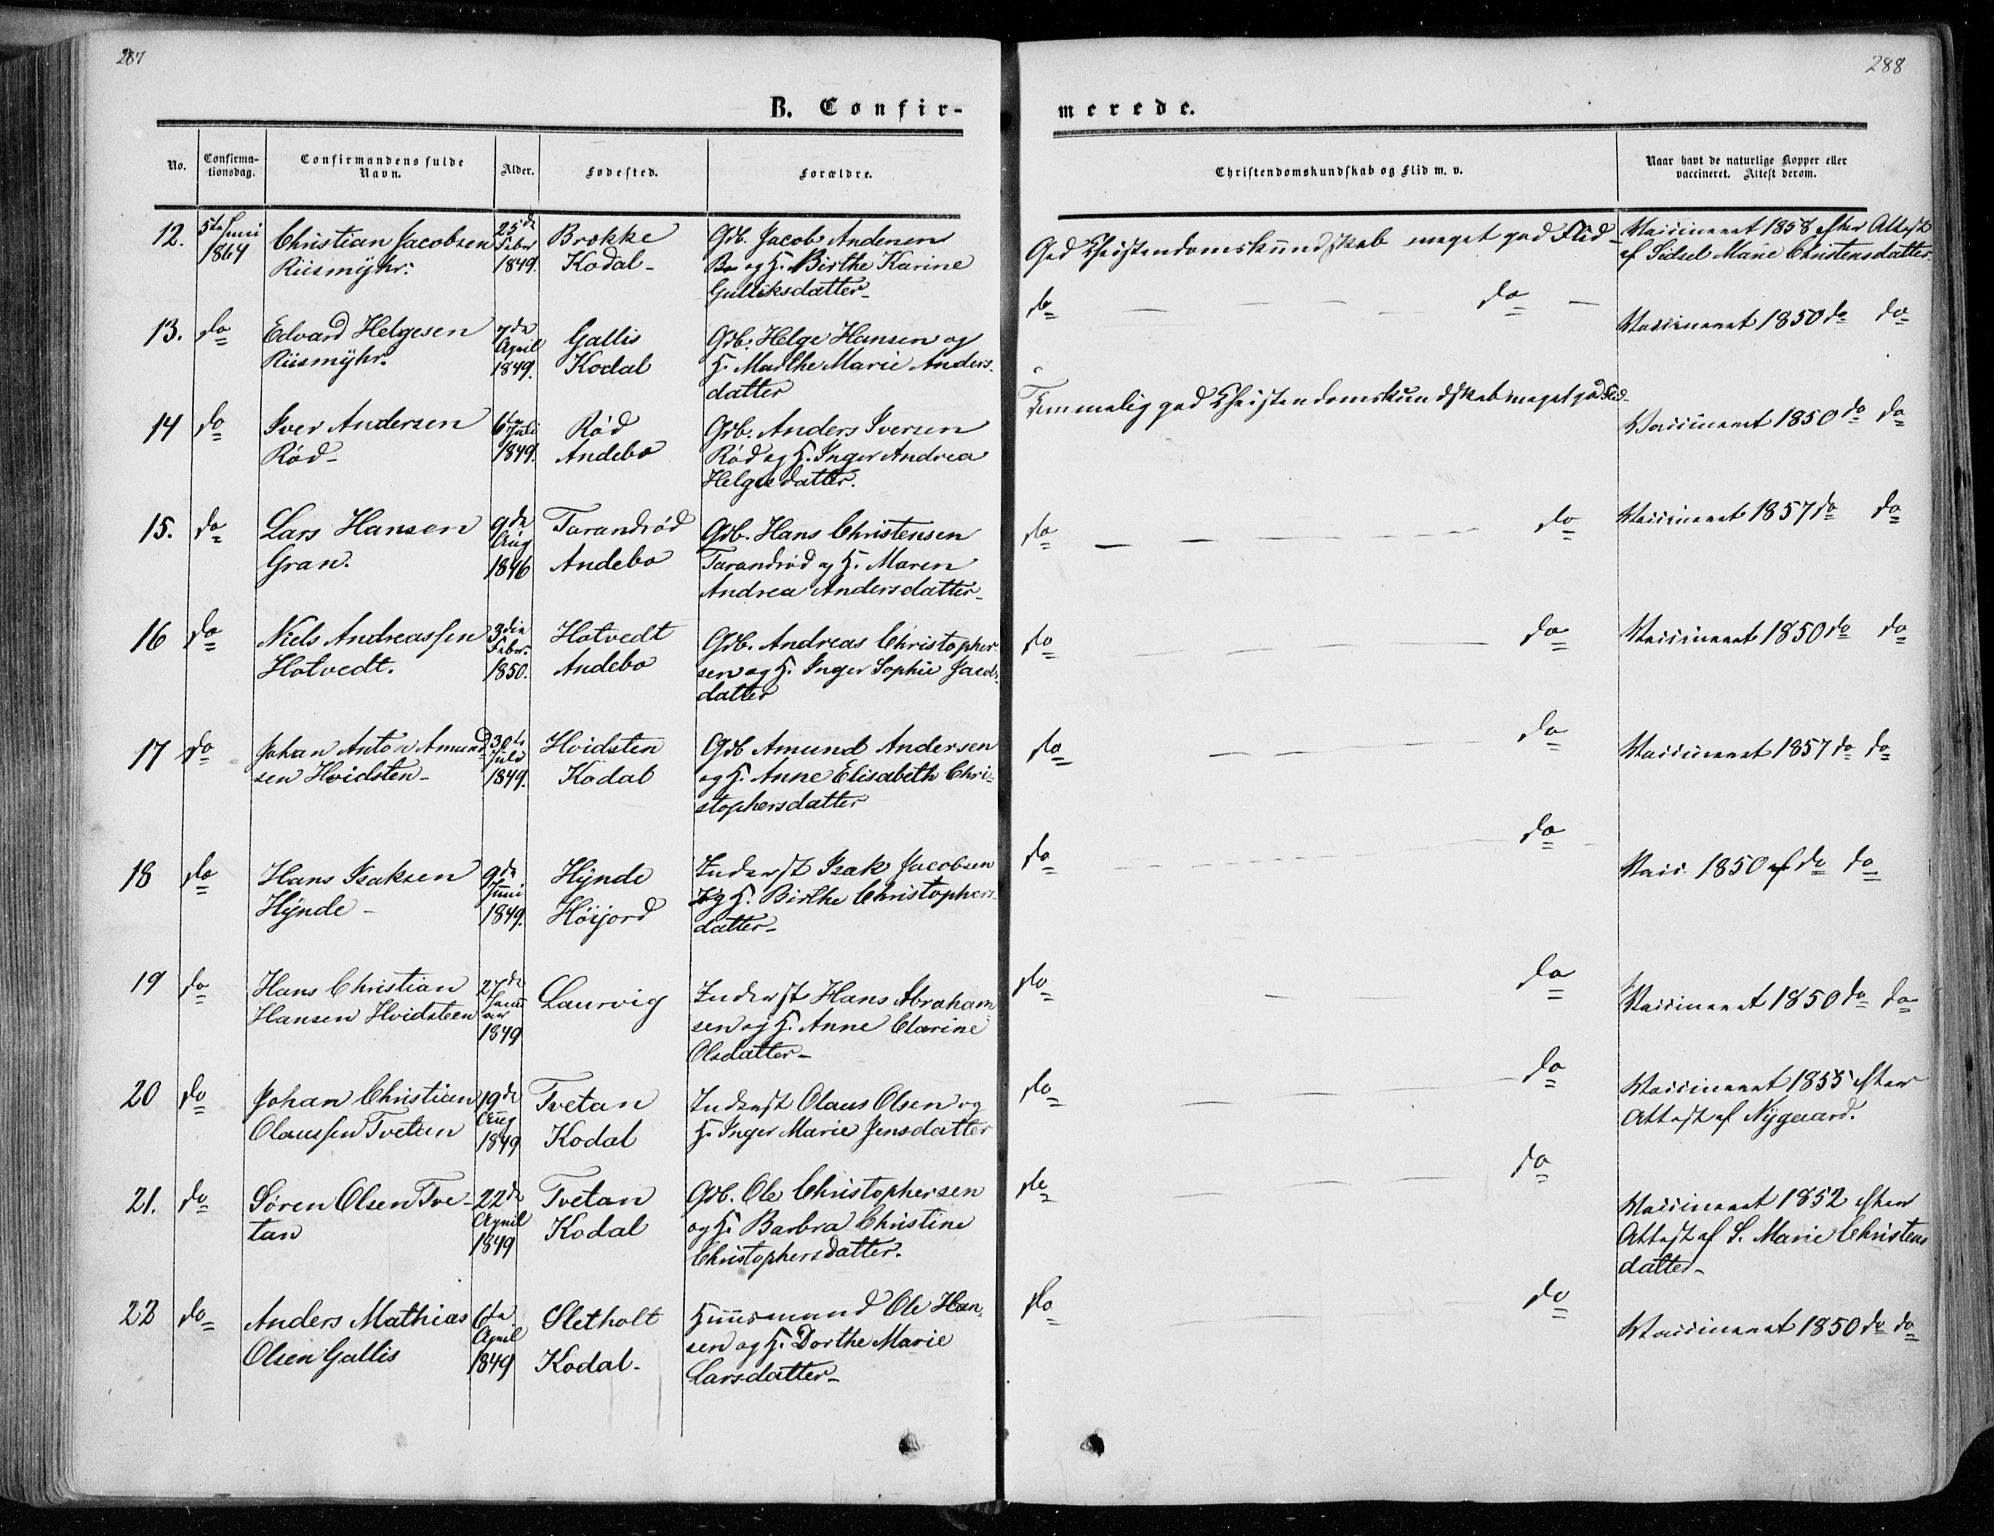 287
288
B. Confir-
merede.
No.
Confirma-
tionsdag.
Confirmandens fulde
Navn.
Alder.
Fødested.
Forældre.
Christendomskundskab og Flid m. v.
Naar havt de naturlige Kopper eller
vaccineret. Attest derom.
12. 5te Juni 1864 Christian Jacobsen Riismÿhr. 25de Febr 1849. Brokke Kodal- Gdb. Jacob Andersen Br og H. Birthe Karine Gulliksdatter- God Christendomskundskab meget god Flid- Vaccineret 1858 efter Attest af Sidsel Marie Christensdatter.
13. do Edvard Helgesen Riismÿhr. 7de April 1849. Gallis Kodal Gdb. Helge Hansen og H. Marthe Marie Anders-datter do do Vaccineret 1850 do do
14 do Iver Andersen Rød- 6te Juli 1849. Rød Andebo Gdb. Anders Iversen Rød og H. Inger Andrea Helgesdatter. Temmelig god Christendomskundskab meget god Flid- Vaccineret 1850 do do
15. do Lars Hansen Gran. 9de Aug 1846 Tarandrød Andebo Gdb. Hans Christensen Tarandrød og H. Maren Andrea Andersdatter- do do Vaccineret 1857 do do
16 do Niels Andreassen Hotvedt. 3die Febr. 1850. Hotvedt Andebo Gdb. Andreas Christopher-sen og H. Inger Sophie Jacobs-datter do do Vaccineret 1850 do do
17 do Johan Anton Amund-sen Hvidsten- 30te Juli 1849. Hvidsten Kodal Gdb Amund Andersen og H. Anne Elisabeth Chri-stophersdatter do do Vaccineret 1857 do do
18 do Hans Isaksen Hÿnde- 9de Juni 1849. Hÿnde Höijord Inderst Isak Jacobsen og H. Birthe Christophers-datter- do do Vacc. 1850 af do do
19 do Hans Christian Hansen Hvidsteen 27de Januar 1849 Laurvig Inderst Hans Abraham-sen og H. Anne Clarine Olsdatter- do do Vaccineret 1850 do do
20 do Johan Christian Olaussen Tvetan 19de Aug 1849 Tvetan Kodal Inderst Olaus Olsen og H. Inger Marie Jensdatter do do Vaccineret 1855 efter Attest af Nygaard.
21. do Søren Olsen Tve-tan 22de April 1849 Tvetan Kodal Gdb. Ole Christophersen og H. Barbra Christine Christophersdatter. do do Vaccineret 1852 efter Attest af S. Marie Christens datter-
22 do Anders Mathias Olsen Gallis 6te April 1849 Sletholt Kodal- Huusmand Ole Han-sen og H. Dorthe Marie Larsdatter- do do Vaccineret 1850 do do